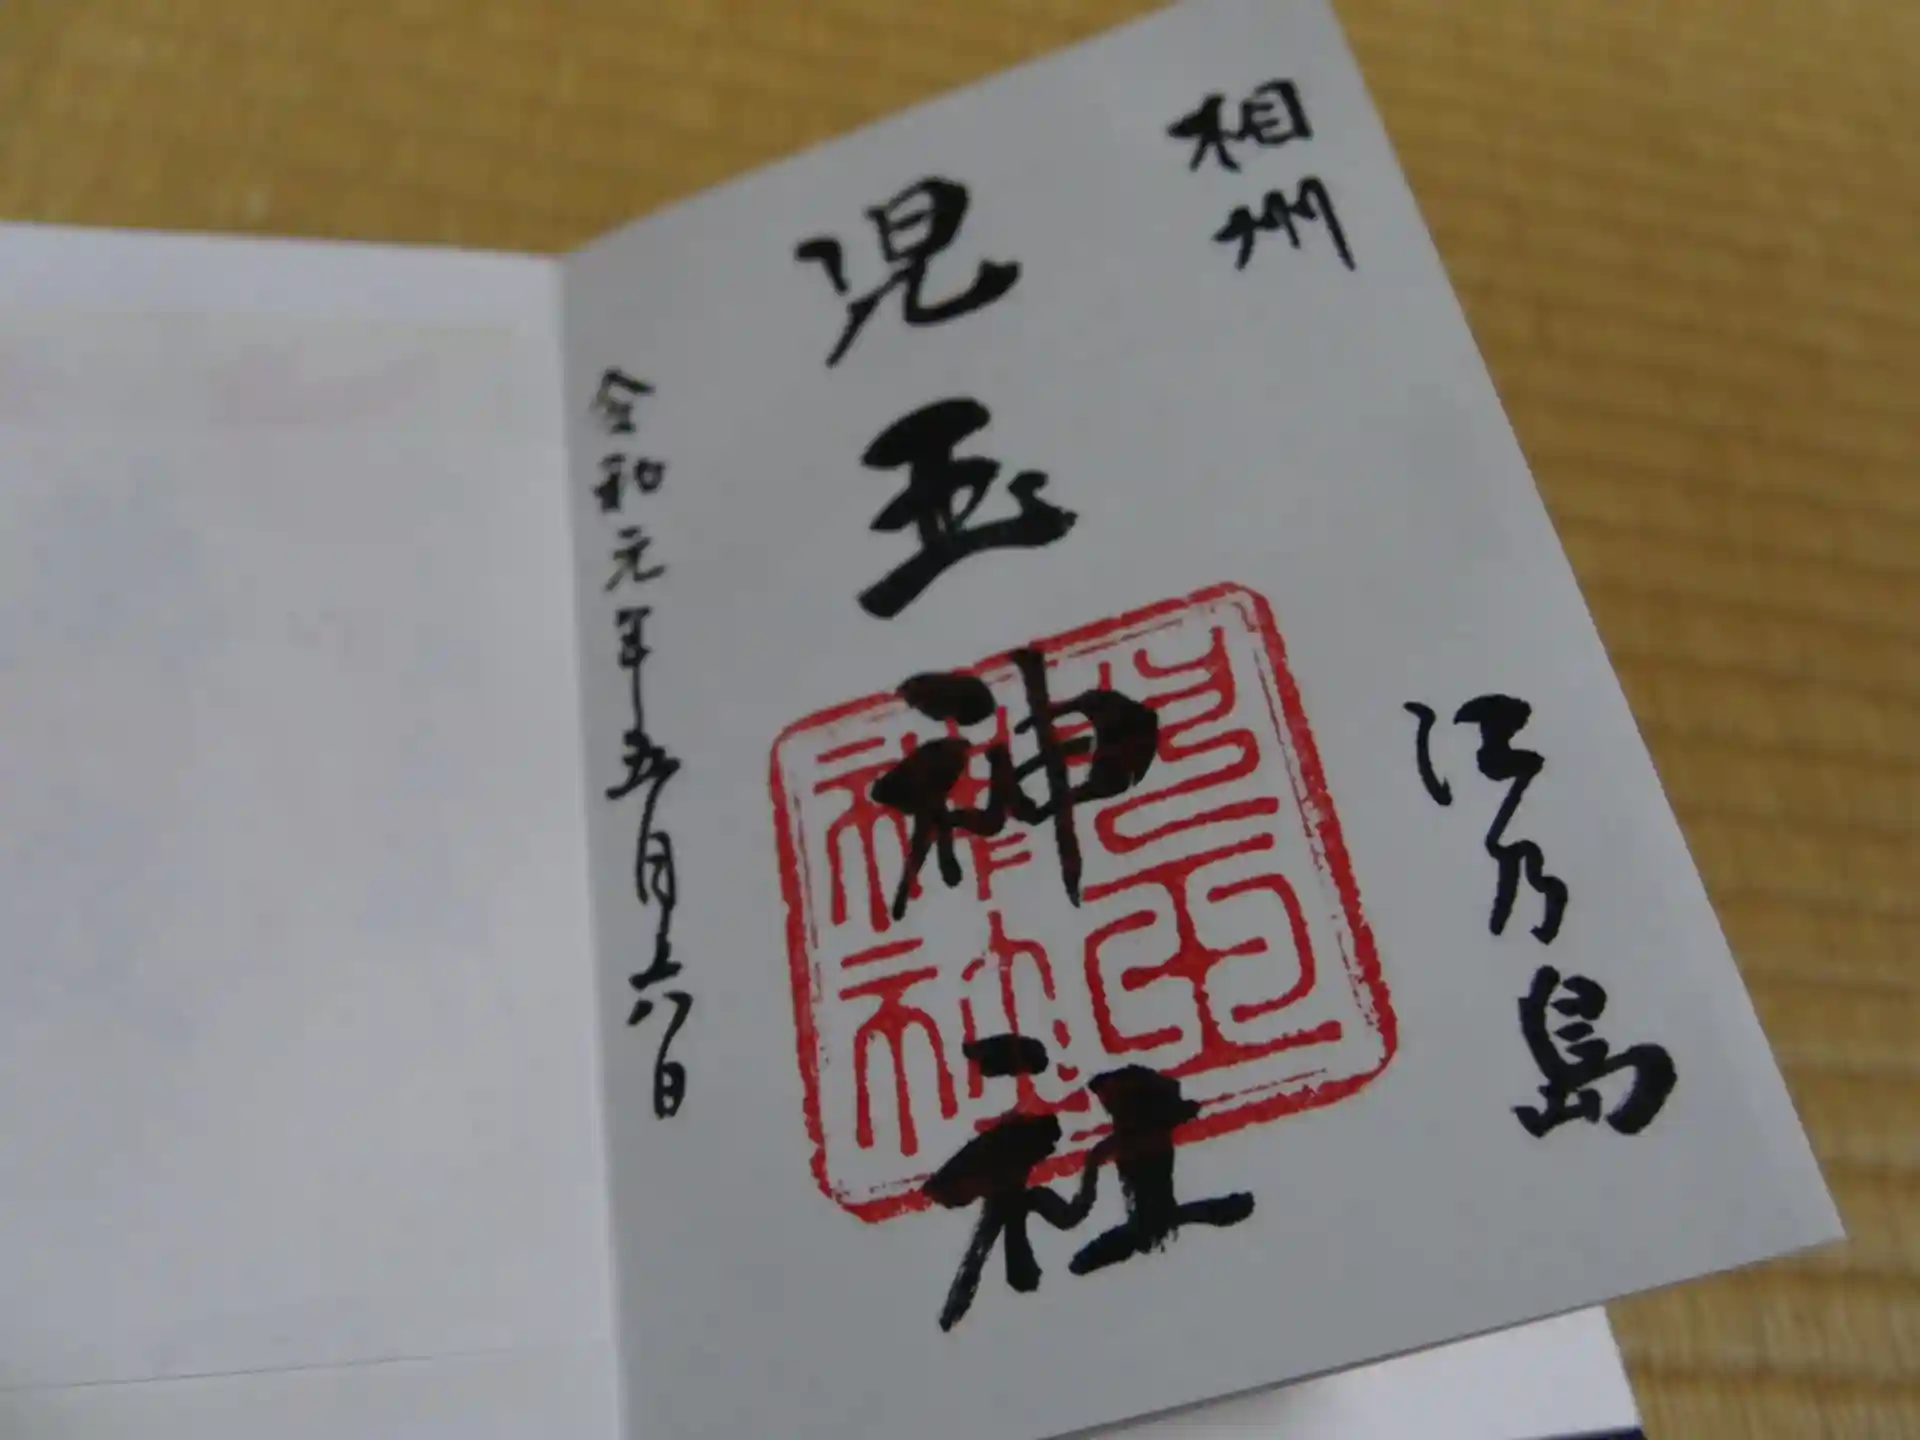 相州
江乃島
児玉神社
児玉神社
令和元年五月十八日